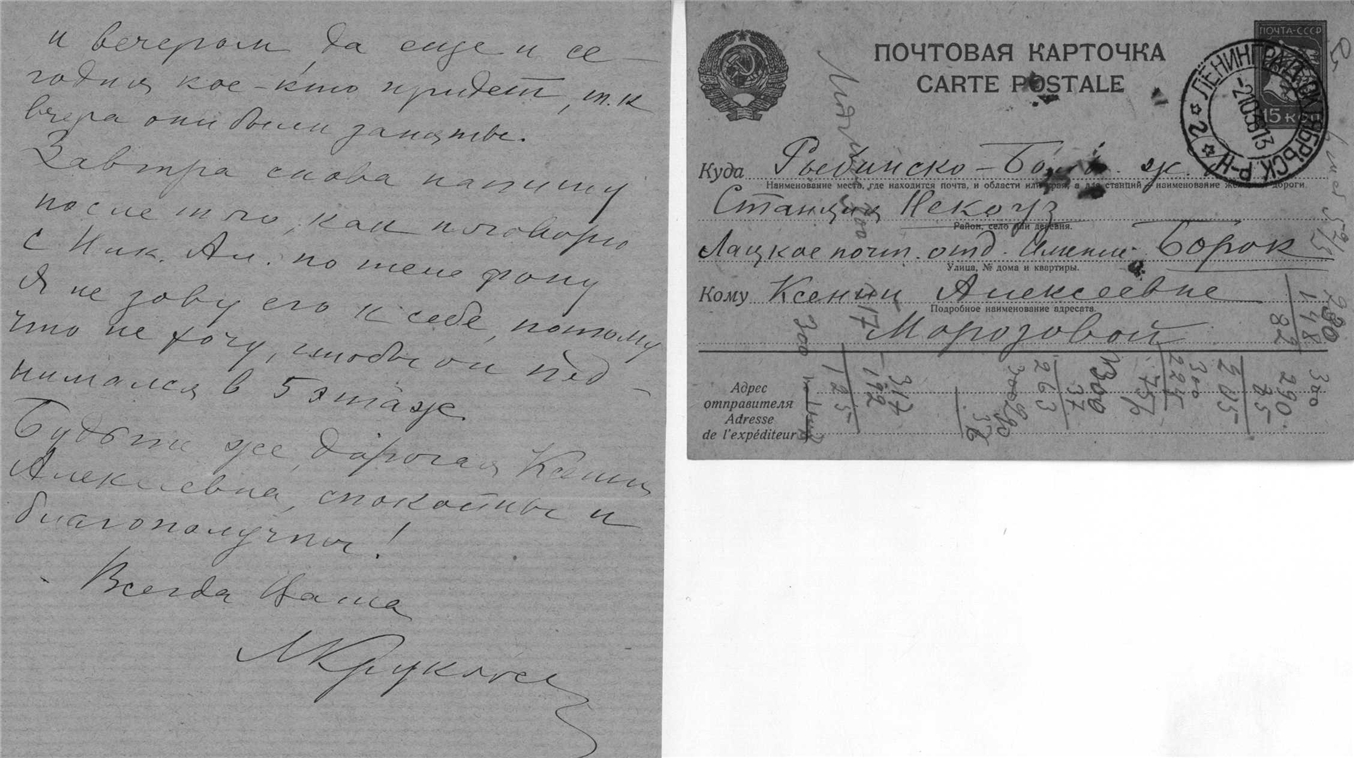 и вечером, да еще и се-
годня кое-кто придет, т.к
вчера они были заняты.
Завтра снова напишу
после того как поговорю
с Ник. Ал. по телефону
Я не зову его к себе, потому
что не хочу, чтобы он под-
нимался в 5 этаж
Будьте же, дорогая Ксения
Алексеевна, спокойны и
благополучны!
Всегда Ваша
ПОЧТОВАЯ КАРТОЧКА
CARTE POSTALE
ПОЧТА-СССР
15 КОП
ЛЕНИНГРАД
Куда Рыбинско- ж.
Наименование места, где находится почта, и области или края, а для станций наименование дороги.
Станция Некоуз
Район, село или деревня.
Лацкое почт. отд. Имение Борок
Улица, № дома и квартиры.
Кому Ксении Алексеевне
Подробное наименование адресата.
Морозовой
Адрес
отправителя
Adresse
de l'expéditeur
317
192
125
300
37
263
290
85
205
300
225